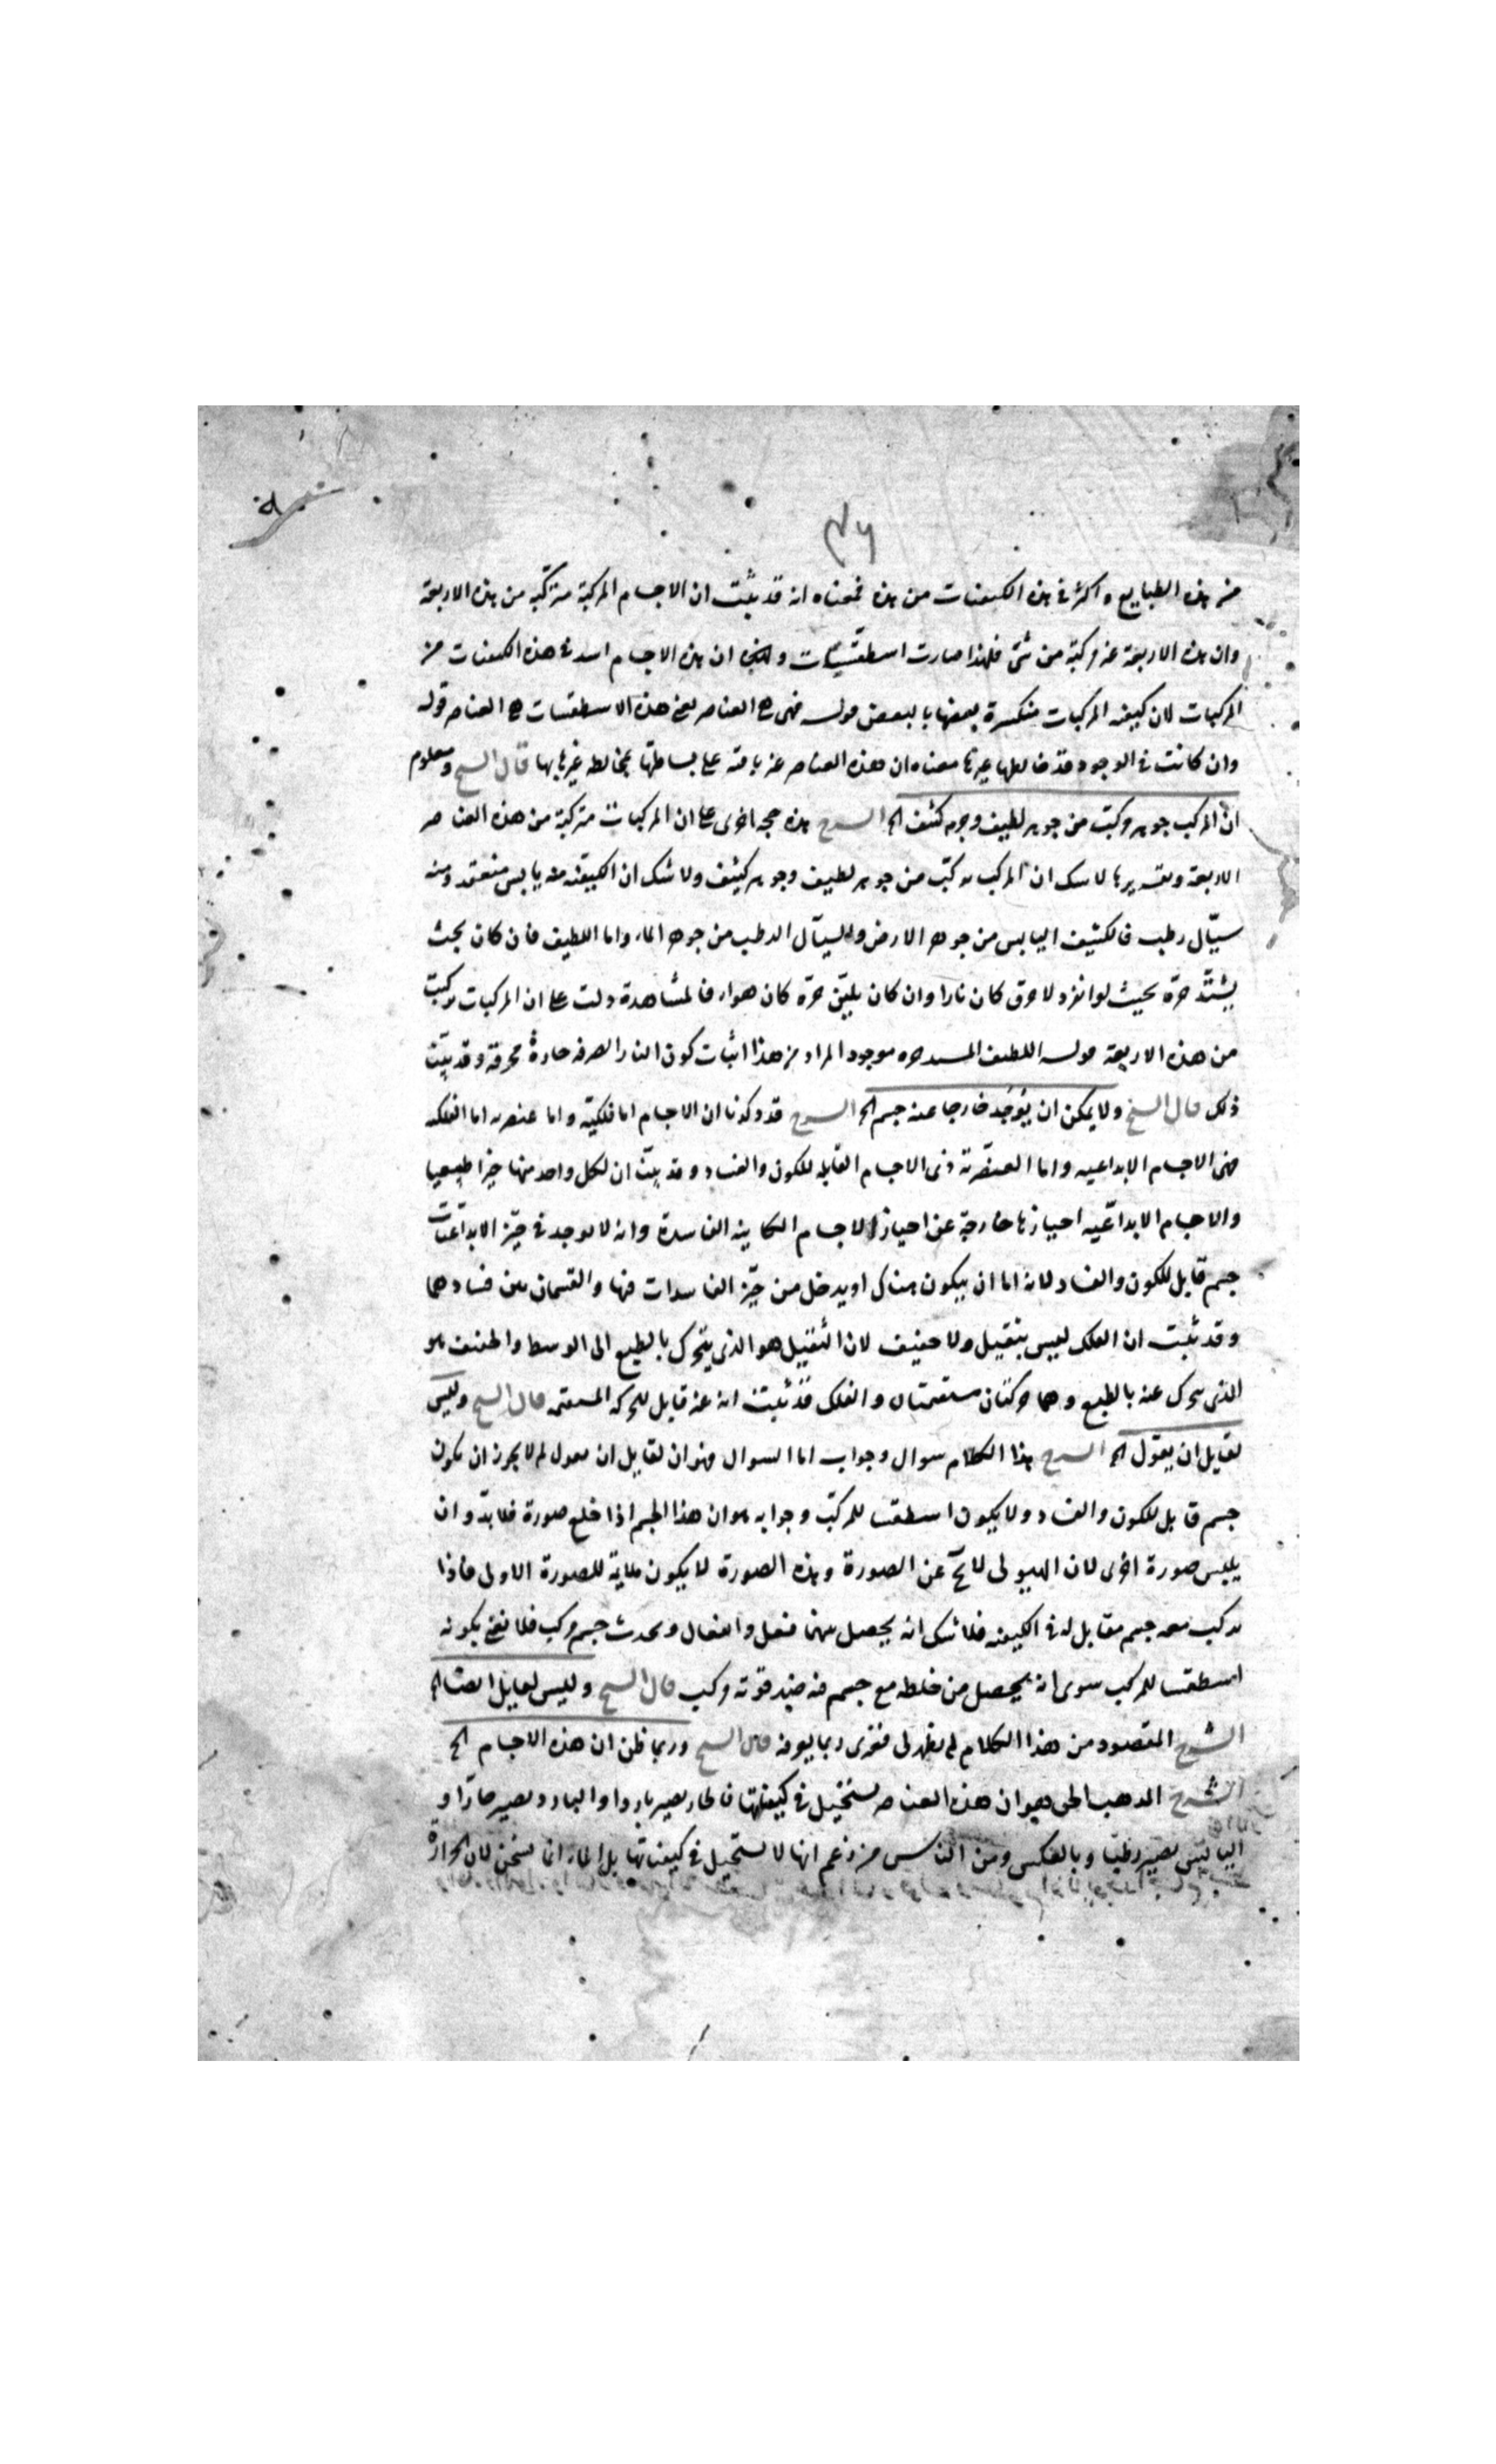 ٣٦
من هذه الطبايع واكثر في هذه الكيفيات من هذه فمعناه انه قد ثبت ان الاجسام المركبة متركبة من هذه الاربعة
وان هذه الاربعة غير مركبة من شئ فلهذا صارت اسطقسات ان هذه الاجسام اشد في هذه الكيفيات من
المركبات لان كيفية المركبات منكسرة بعضها بالبعض قوله فهى هى العناصر يعنى هذه الاسطقسات هى العناصر قوله
وان كانت في الوجود قد خالطها غيرها معناه ان هذه العناصر غير باقية على بساطتها بمخالطة غيرها بها قال الشيخ ومعلوم
ان المركب جوهر ركبت من جوهر لطيف وجوهر كثيف الخ الشرح هذه حجة اخرى على ان المركبات متركبة من هذه العناصر
الاربعة وتقريرها لا شك ان المركب تركب من جوهر لطيف وجوهر كثيف ولا شك ان الكثيف منه يابس منعقد ومنه
سيّال رطب فالكثيف اليابس من جوهر الارض والسيّال الرطب من جوهر الماء واما اللطيف فان كان بحيث
يشتدّ حرّه بحيث لو انفرد لاحرق كان نارا وان كان يلين حرّه كان هواء فالمشاهدة دلت على ان المركبات تركبت
من هذه الاربعة قوله اللطيف المشتد حره موجود المراد من هذا اثبات كون النار الصرفة حارة محرقة وقد بيّن
ذلك قال الشيخ ولا يمكن ان يوجد خارجا عنه جسم الخ الشرح قد ذكرنا ان الاجسام اما فلكية واما عنصرية اما الفلكية
فهى الاجسام الابداعية واما العنصرية فهى الاجسام القابلة للكون والفساد وقد بيّن ان لكل واحد منها حيزا طبيعيا
والاجسام الابداعية احيازها خارجة عن احياز الاجسام الكاينة الفاسدة وانه لا يوجد في حيّز الابداعيات
جسم قابل للكون والفساد لانه اما ان يكون هناك او يدخل من حيّز الفاسدات فيها والقسمان بين فسادهما
وقد ثبت ان الفلك ليس بثقيل ولا خفيف لان الثقيل هو الذى يتحرك بالطبع الى الوسط والخفيف هو
الذى يتحرك عنه بالطبع وهما حركتان مستقيمتان والفلك قد ثبت انه غير قابل للحركة المستقيمة قال الشيخ وليس
لقايل ان يقول الخ الشرح هذا الكلام سوال وجواب اما السوال فهو ان لقايل ان يقول لم لا يجوز ان يكون
جسم قابل للكون والفساد ولا يكون اسطقسا للمركب وجوابه هو ان هذا الجسم اذا خلع صورة فلا بدّ وان
يلبس صورة اخرى لان الهيولى لا تخ عن الصورة وهذه الصورة لا يكون ملايمة للصورة الاولى فاذا
تركب معه جسم مقابل له في الكيفية فلا شك انه يحصل بينهما فعل وانفعال ويحدث جسم مركب فلا نعنى بكونه
اسطقسا للمركب سوى انه يحصل من خلطه مع جسم فيه ضد قوته مركب قال الشيخ وليس لقايل ايضا الخ
الشرح المقصود من هذا الكلام لم يظهر لى فغيرى ربما يعرفه قال الشيخ وربما ظن ان هذه الاجسام الخ
الشرح المذهب الحق هو ان هذه العناصر تستحيل في كيفياتها فالحار يصير باردا والبارد يصير حارّا و
اليابس يصير رطبا وبالعكس ومن الناس من زعم انها لا تستحيل في كيفياتها بل الماء انما تسخن لان الحرارة